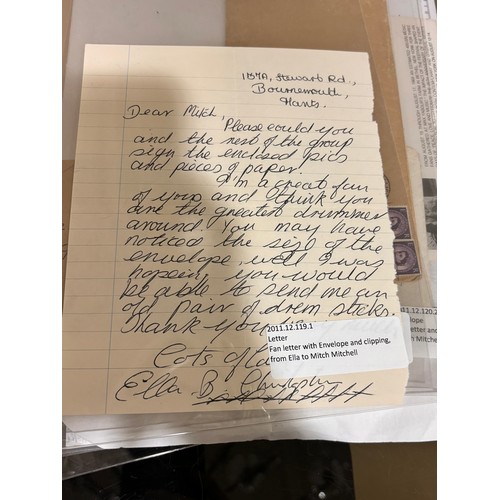 Stewart Rd.,
Bournemouth,
Hants.
Dear Mitch,
Please could you
and the rest of the group
sign the enclosed pics
and pieces of paper.
I'm a great fan
of yours and think you
are the greatest drummer
around. You may have
noticed the size of the
envelope, well I was
hopein' you would
be able to send me an
old pair of drum sticks.
Thank you
Lots of
Ella B.
2011.12.119.1
Letter
Fan letter with Envelope and clipping,
from Ella to Mitch Mitchell